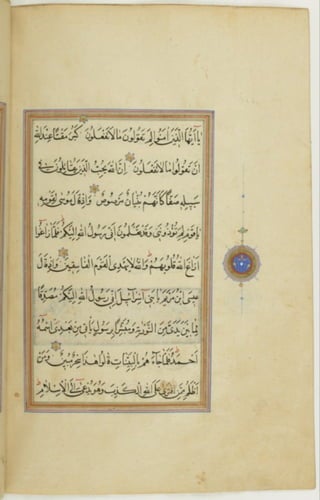 يا أيها الذين آمنوا لم تقولون ما لا تفعلون كبر مقتا عند الله
ان تقولوا ما لا تفعلون ان الله يحب الذين يقاتلون في
سبيله صفا كأنهم بنيان مرصوص واذ قال موسى لقومه
يا قوم لم تؤذونني وقد تعلمون اني رسول الله اليكم فلما زاغوا
ازاغ الله قلوبهم والله لا يهدي القوم الفاسقين واذ قال
عيسى ابن مريم يا بني اسرائيل اني رسول الله اليكم مصدقا
لما بين يدي من التورية ومبشرا برسول يأتي من بعدي اسمه
احمد فلما جاءهم بالبينات قالوا هذا سحر مبين ومن
اظلم ممن افترى على الله الكذب وهو يدعى الى الاسلام